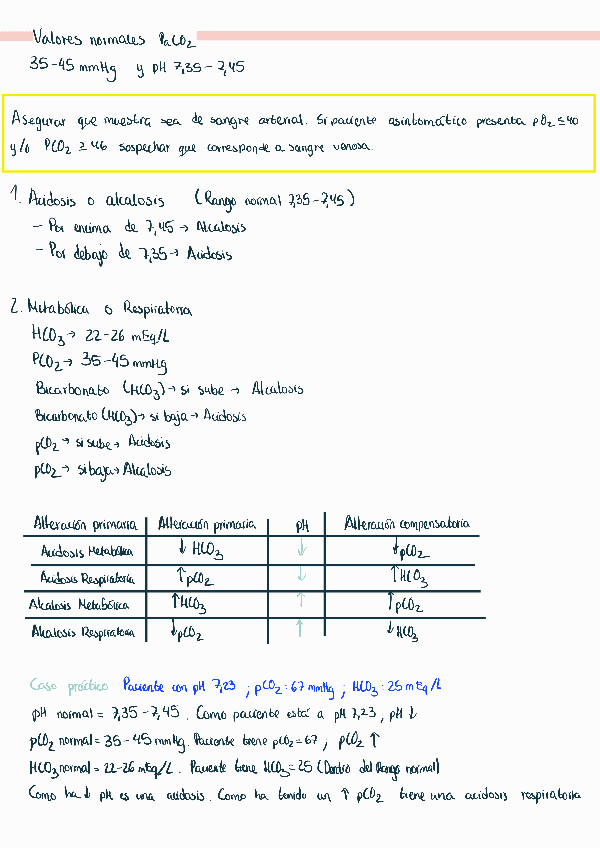 Valores normales PaCO2
35-45 mmHg y pH 7,35 - 7,45
Asegurar que muestra sea de sangre arterial. Si paciente asintomático presenta pO2 ≤ 40
y/o PCO2 ≥ 46 sospechar que corresponde a sangre venosa.
1. Acidosis o alcalosis (Rango normal 7,35-7,45)
- Por encima de 7,45 → Alcalosis
- Por debajo de 7,35 → Acidosis
2. Metabólica o Respiratoria
HCO3 → 22-26 mEq/L
PCO2 → 35-45 mmHg
Bicarbonato (HCO3) → si sube → Alcalosis
Bicarbonato (HCO3) → si baja → Acidosis
pCO2 → si sube → Acidosis
pCO2 → si baja → Alcalosis
Alteración primaria Alteración primaria pH Alteración compensatoria
Acidosis Metabólica ↓ HCO3 ↓ ↓ pCO2
Acidosis Respiratoria ↑ pCO2 ↓ ↑ HCO3
Alcalosis Metabólica ↑ HCO3 ↑ ↑ pCO2
Alcalosis Respiratoria ↓ pCO2 ↑ ↓ HCO3
Caso práctico Paciente con pH 7,23 ; pCO2: 67 mmHg ; HCO3: 25 mEq/L
pH normal = 7,35 - 7,45. Como paciente está a pH 7,23, pH ↓
pCO2 normal = 35-45 mmHg. Paciente tiene pCO2 = 67 ; pCO2 ↑
HCO3 normal = 22-26 mEq/L. Paciente tiene HCO3 = 25 (Dentro del Rango normal)
Como ha ↓ pH es una acidosis. Como ha tenido un ↑ pCO2 tiene una acidosis respiratoria